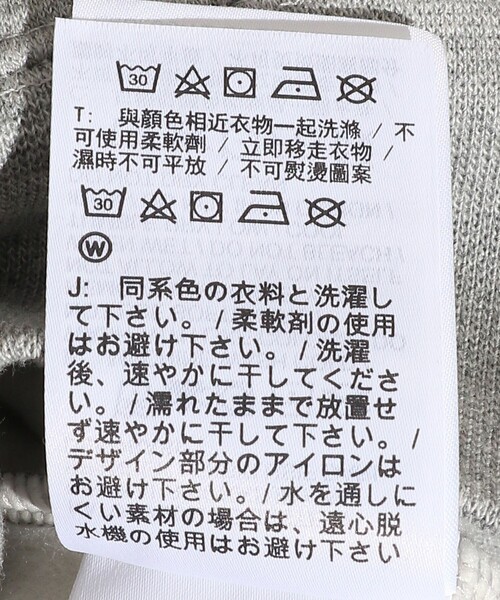 30
T: 與顏色相近衣物一起洗滌 / 不
可使用柔軟劑 / 立即移走衣物 /
濕時不可平放 / 不可熨燙圖案
30
W
J: 同系色の衣料と洗濯し
て下さい。/ 柔軟剤の使用
はお避け下さい。/ 洗濯
後、速やかに干してくださ
い。/ 濡れたままで放置せ
ず速やかに干して下さい。/
デザイン部分のアイロンは
お避け下さい。/ 水を通しに
くい素材の場合は、遠心脱
水機の使用はお避け下さい